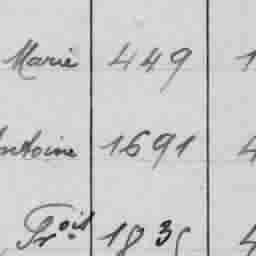 Marie 449 1
Antoine 1691 4
Frois 183 4